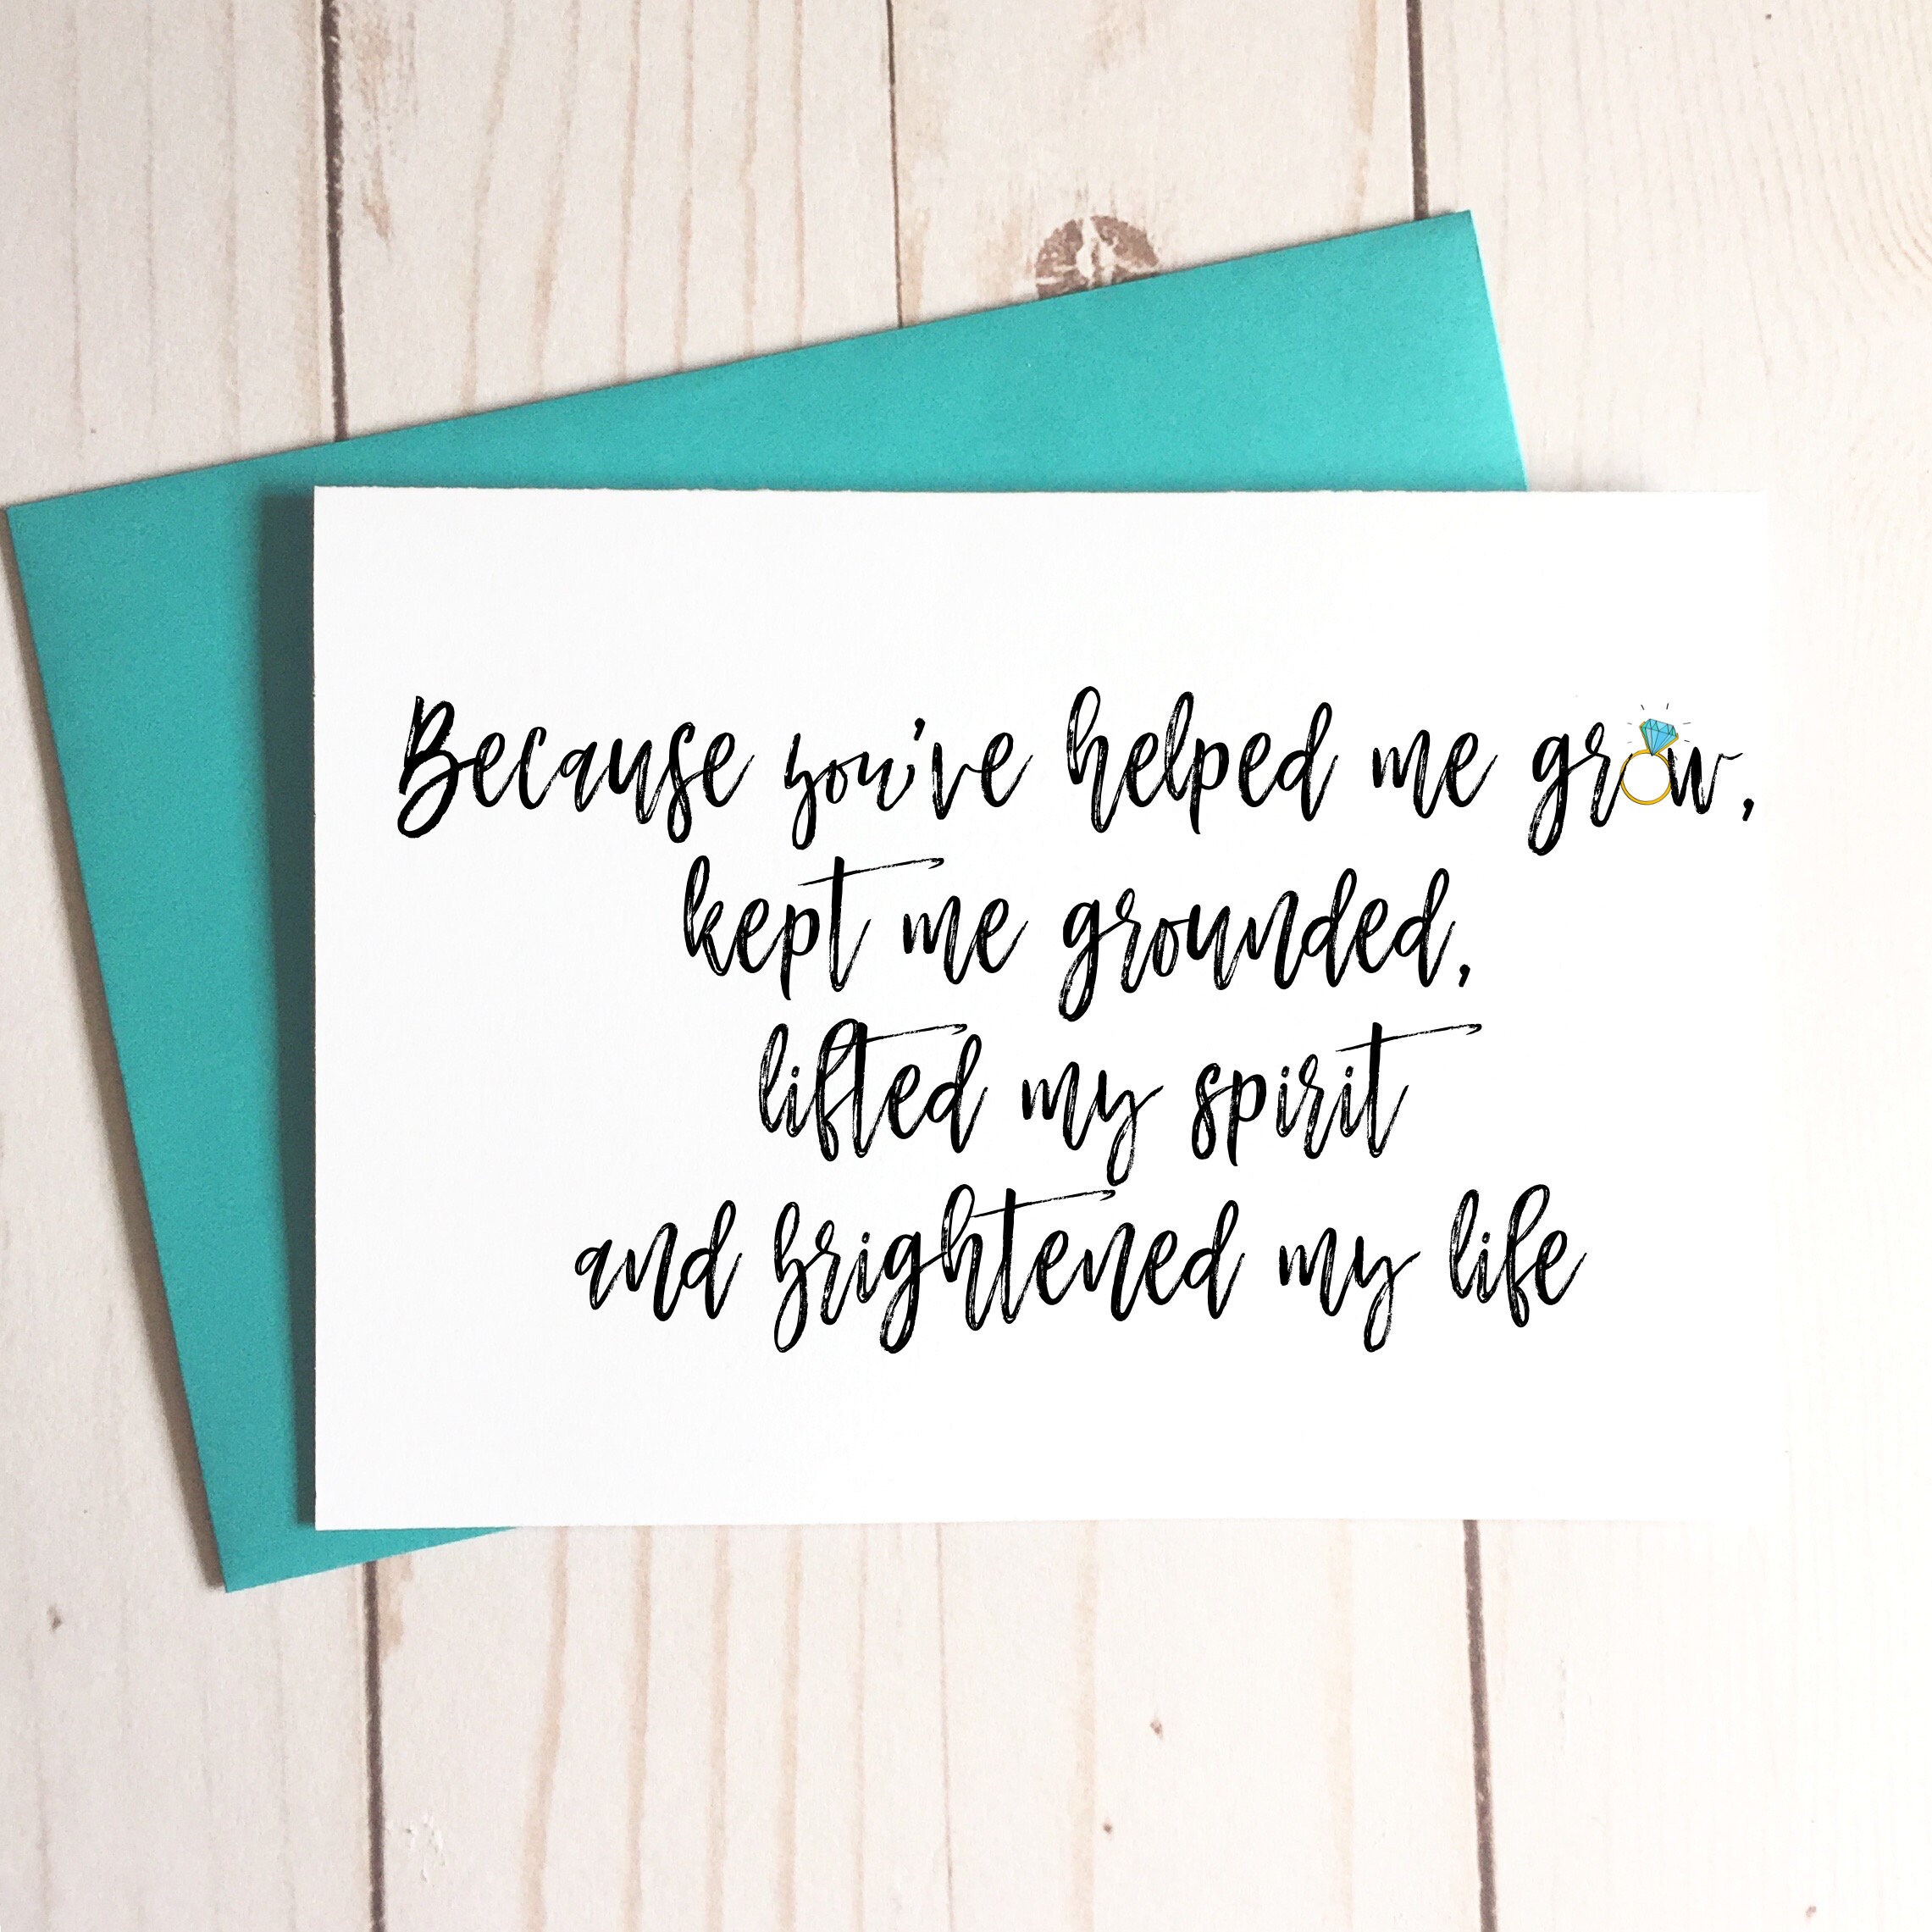 Because you've helped me grow,
kept me grounded,
lifted my spirit
and brightened my life